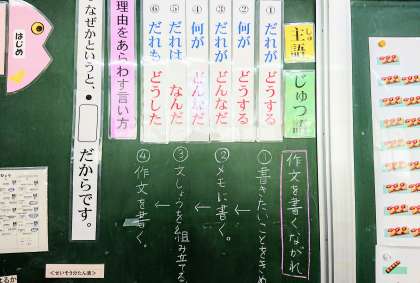 主語
しゅ ご
じゅつ語
①だれが どうする
②何が どうする
③だれが どんなだ
④何が どんなだ
⑤だれは なんだ
⑥だれも どうした
理由をあらわす言い方
なぜかというと、
だからです。
はじめ
作文を書くながれ
①書きたいことをきめ
②メモに書く。
③文しょうを組み立てる
④作文を書く。
<せいそうぶたん表>